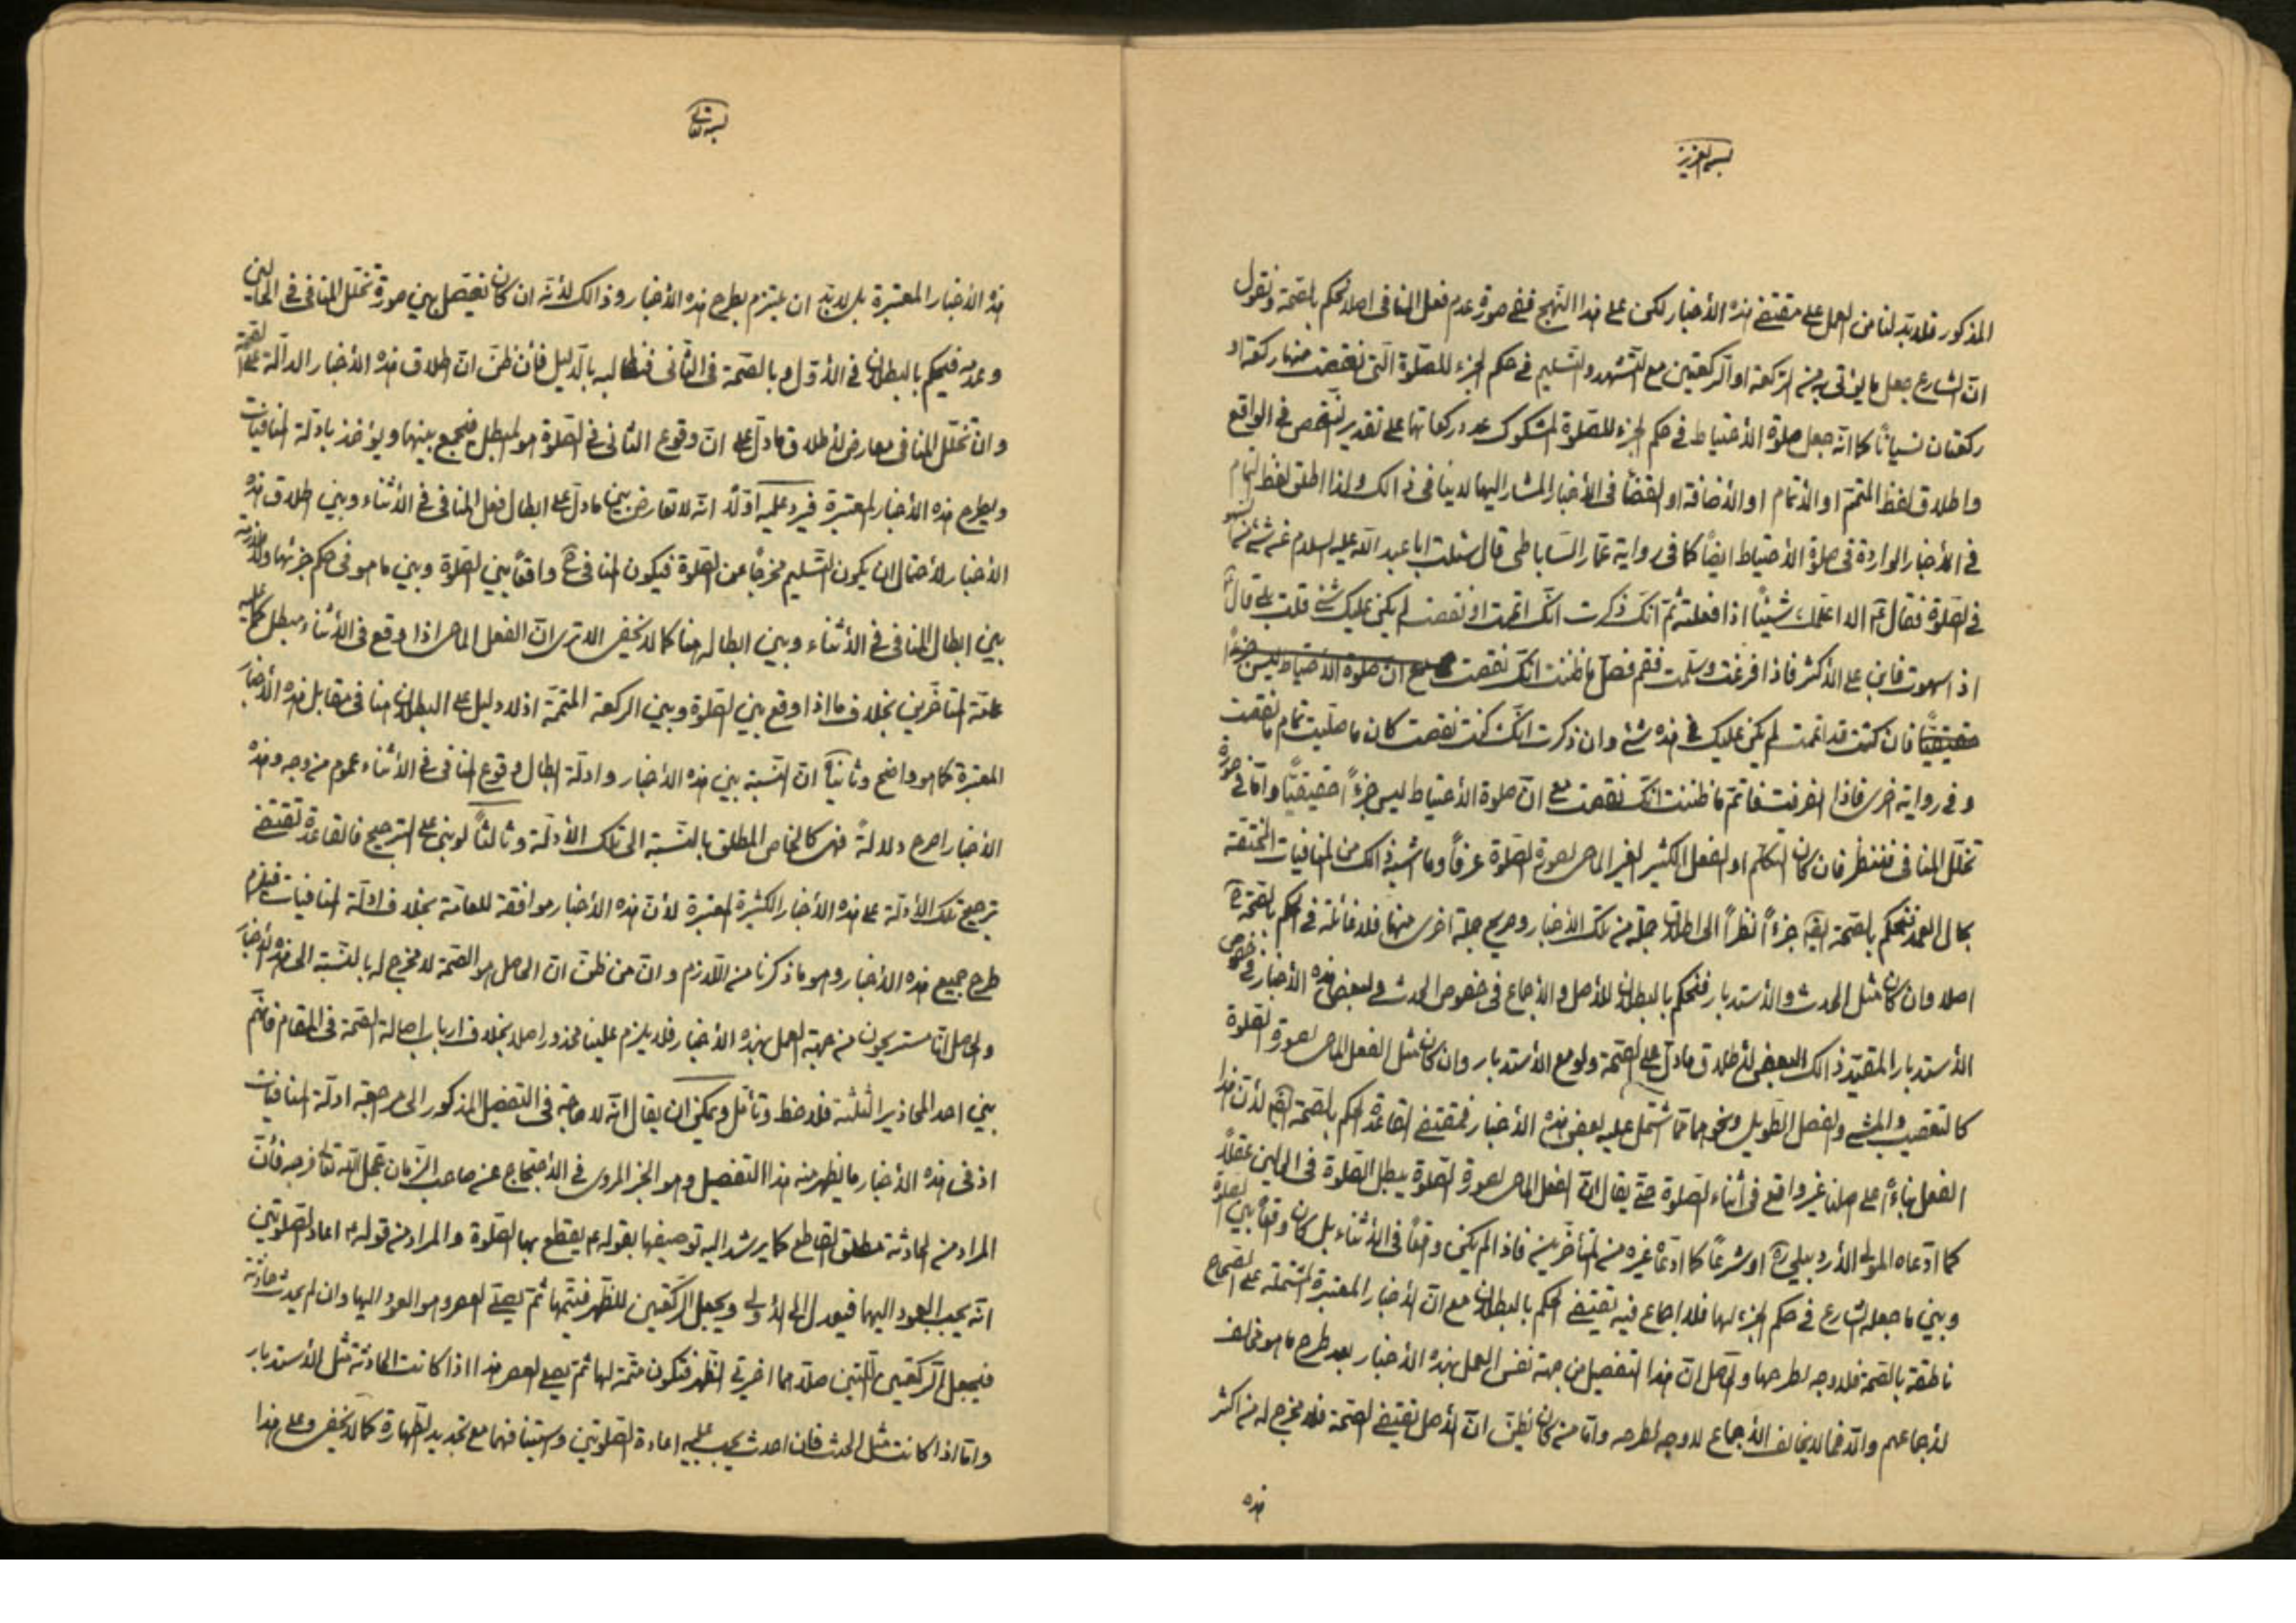 بسم العزيز
المذكور فلا بدّ لنا من العمل على مقتضى هذه الأخبار لكن على هذا النّهج ففى صورة عدم فعل المنافى اصلا نحكم بالصّحة ونقول
انّ الشارع جعل ما يؤتى به من الرّكعة او الرّكعتين مع التّشهد والتّسليم فى حكم الجزء للصّلوة الّتى نقصت منها ركعة او
ركعتان نسيانًا كما انّه جعل صلوة الأحتياط فى حكم الجزء للصّلوة المشكوك عدد ركعاتها على تقدير النّقص فى الواقع
واطلاق لفظ المتمّم او الأتمام او الأضافة او القضاء فى الأخبار المشار اليها لا ينافى ذالك ولذا اطلق لفظ التمام
فى الأخبار الواردة فى صلوة الأحتياط ايضاً كما فى رواية عمّار السّاباطى قال سئلت ابا عبد اللّه عليه السلام عن شئ من السّهو
فى الصّلوة فقال ع الا اعلّمك شيئًا اذا فعلته ثمّ انّك ذكرت انّك اتممت او نقصت لم يكن عليك شئ قلت بلى قال
اذا سهوت فابن على الأكثر فاذا فرغت وسلّمت فقم فصلّ ما ظننت انّك نقصت مع انّ صلوة الأحتياط ليس جزءً
حقيقيًّا فان كنت قد اتممت لم يكن عليك فى هذه شئ وان ذكرت انّك كنت نقصت كان ما صلّيت تمام ما نقصت
وفى رواية اخرى فاذا انصرفت فاتمّ ما ظننت انّك نقصت مع انّ صلوة الأحتياط ليس جزءً حقيقيًّا وامّا فى صورة
تخلّل المنافى فننظر فان كان التكلّم او الفعل الكثير الغير الماحى لصورة الصّلوة عرفاً وما اشبه ذالك من المنافيات المختصّة
بحال العمد فنحكم بالصّحة ايضا جزءاً نظراً الى اطلاق جملة من تلك الأخبار وصريح جملة اخرى منها فلا غائلة فى الحكم بالصّحة ح
اصلا وان كان مثل الحدث والأستدبار فنحكم بالبطلان للأصل والأجماع فى خصوص الحدث ولبعض هذه الأخبار فى خصوص
الأستدبار المقيّد ذالك البعض لأطلاق ما دلّ على الصّحة ولو مع الأستدبار وان كان مثل الفعل الماحى لصورة الصّلوة
كالتعقيب والمشى والفصل الطّويل ونحوها ممّا اشتمل عليه بعض هذه الأخبار فمقتضى القاعدة الحكم بالصّحة ايضا لأنّ هذا
الفعل بناءً على اصلنا غير واقع فى اثناء الصّلوة حتّى يقال انّ الفعل الماحى لصورة الصّلوة يبطل الصّلوة فى الحالين عقلاً
كما ادّعاه المولى الأردبيلى ره او شرعاً كما ادّعاه غيره من المتأخّرين فاذا لم يكن واقعاً فى الأثناء بل كان واقعاً بين الصّلوة
وبين ما جعله الشارع فى حكم الجزء لها فلا اجماع فيه يقتضى الحكم بالبطلان مع انّ الأخبار المعتبرة المشتملة على الصّحاح
ناطقة بالصّحة فلا وجه لطرحها والحاصل انّ هذا التفصيل من جهة نفس العمل بهذه الأخبار بعد طرح ما هو مخالف
لأجماعهم والّا فما لا يخالف الأجماع لا وجه لطرحه وامّا من كان يظنّ انّ الأصل يقتضى الصّحة فلا مخرج له من اكثر
هذه
بسمه تعالى
هذه الأخبار المعتبرة بل لا بدّ ان يلتزم بطرح هذه الأخبار وذالك لأنّه ان كان يفصّل بين صورة تخلّل المنافى فى الحالين
وعدمه فيحكم بالبطلان فى الأوّل وبالصّحة فى الثّانى فنطالبه بالدّليل فأن ظنّ انّ اطلاق هذه الأخبار الدالّة على الصّحة
وان تخلّل المنافى معارض لأطلاق ما دلّ على انّ وقوع الثانى فى الصّلوة هو المبطل فنجمع بينهما ويؤخذ بادلّة المنافيات
ويطرح هذه الأخبار المعتبرة فيرد عليه اوّلاً انّه لا تعارض بين ما دلّ على ابطال فعل المنافى فى الأثناء وبين اطلاق هذه
الأخبار لأحتمال ان يكون التّسليم مخرجاً عن الصّلوة فيكون المنافى ح واقعاً بين الصّلوة وبين ما هو فى حكم جزئها ولا ملازمة
بين ابطال المنافى فى الأثناء وبين ابطاله هنا كما لا يخفى الا ترى انّ الفعل الماحى اذا وقع فى الأثناء مبطل كما عليه
عامّة المتأخّرين بخلاف ما اذا وقع بين الصّلوة وبين الركعة المتمّمة اذ لا دليل على البطلان هنا فى مقابل هذه الأخبار
المعتبرة كما هو واضح وثانياً انّ النّسبة بين هذه الأخبار وادلّة ابطال وقوع المنافى فى الأثناء عموم من وجه وهذه
الأخبار اصرح دلالةً فهى كالخاص المطلق بالنّسبة الى تلك الأدلّة وثالثاً لو بنى على الترجيح فالقاعدة تقتضى
ترجيح تلك الأدلّة على هذه الأخبار الكثيرة المعتبرة لأنّ هذه الأخبار موافقة للعامّة بخلاف ادلّة المنافيات فيلزم
طرح جميع هذه الأخبار وهو ما ذكرنا من اللّازم وانّ من ظنّ انّ الحاصل هو الصّحة لا مخرج له بالنّسبة الى هذه الأخبار
والحاصل انّا مستريحون من جهة العمل بهذه الأخبار فلا يلزم علينا محذور اصلا بخلاف ارباب اصالة الصّحة فى المقام فانّهم
بين احد المحاذير الثّلثة فلاحظ وتأمّل ويمكن ان يقال انّه لا حاجة فى التفصيل المذكور الى مراجعة ادلّة المنافيات
اذ فى هذه الأخبار ما يظهر منه هذا التفصيل وهو الخبر المروى فى الأحتجاج عن صاحب الزمان عجّل اللّه تعالى فرجه فأنّ
المراد من الحادثة مطلق القاطع كما يرشد اليه توصيفها بقوله ع يقطع بها الصّلوة والمراد من قوله ع اعاد الصّلوتين
انّه يجب العود اليهما فيعدل الى الأولى ويجعل الرّكعتين للظّهر فيتمّها ثمّ يصلّى العصر وهو العود اليها وان لم يحدث حادثة
فيجعل الرّكعتين اللّتين صلّاهما اخرتى الظّهر فتكون متمّمة لها ثمّ يصلى العصر هذا اذا كانت الحادثة مثل الأستدبار
وامّا اذا كانت مثل الحدث فان احدث يجب عليه اعادة الصّلوتين واستينافهما مع تجديد الطّهارة كما لا يخفى وعلى هذا